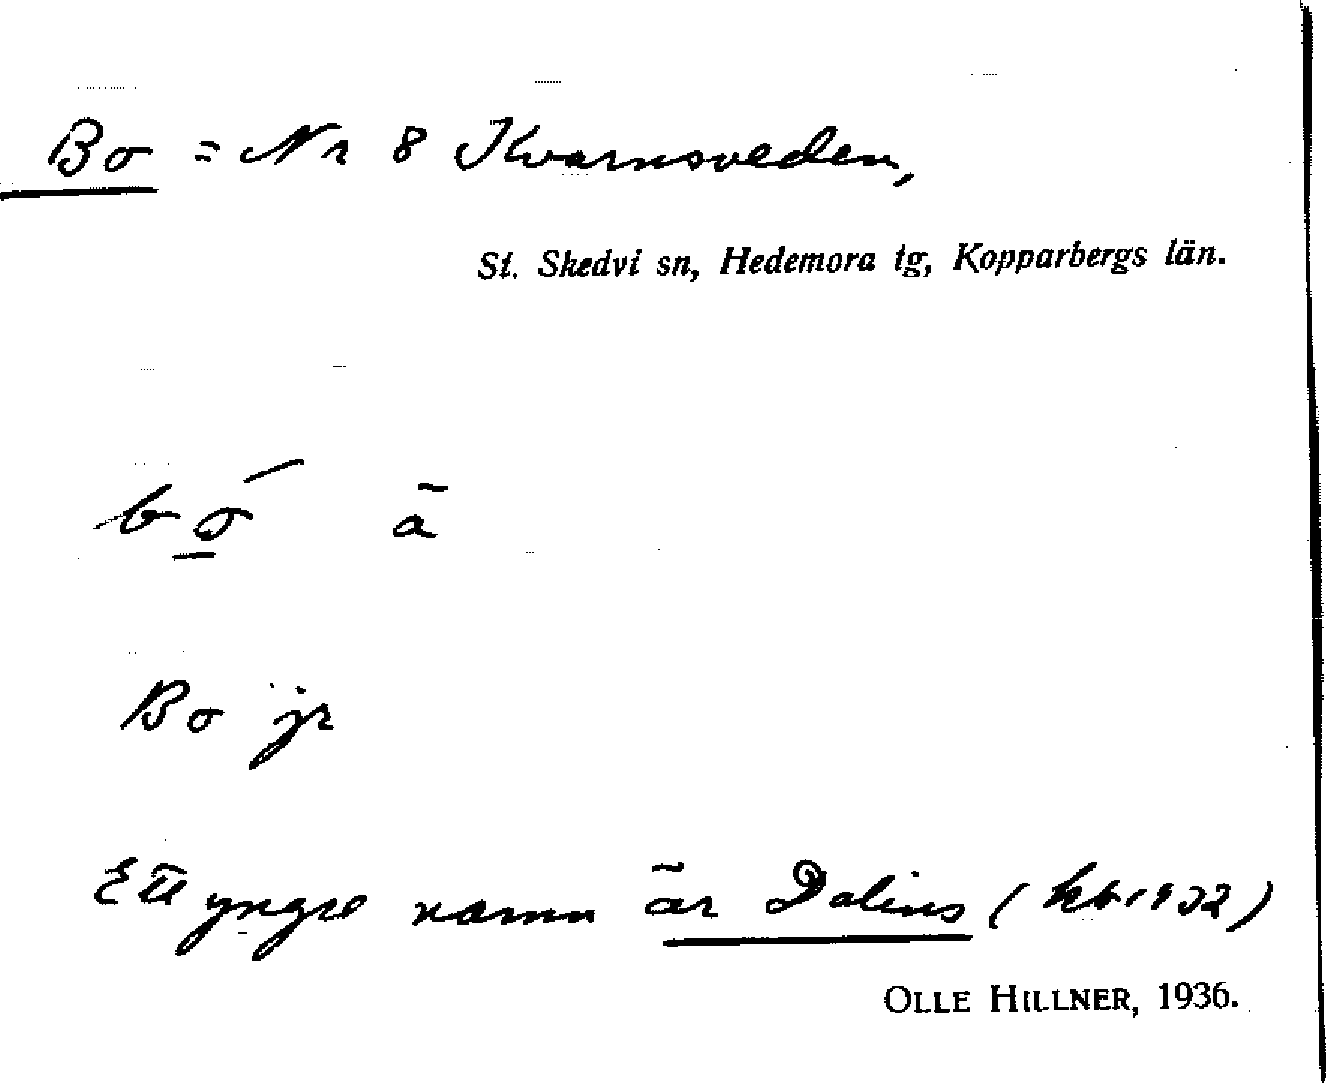 Bo = Nr 8 Kvarnsveden,
St. Skedvi sn, Hedemora tg, Kopparbergs län.
bo ä
Bo jr
Ett yngre namn är Dalins (kb 1932)
OLLE HILLNER, 1936.